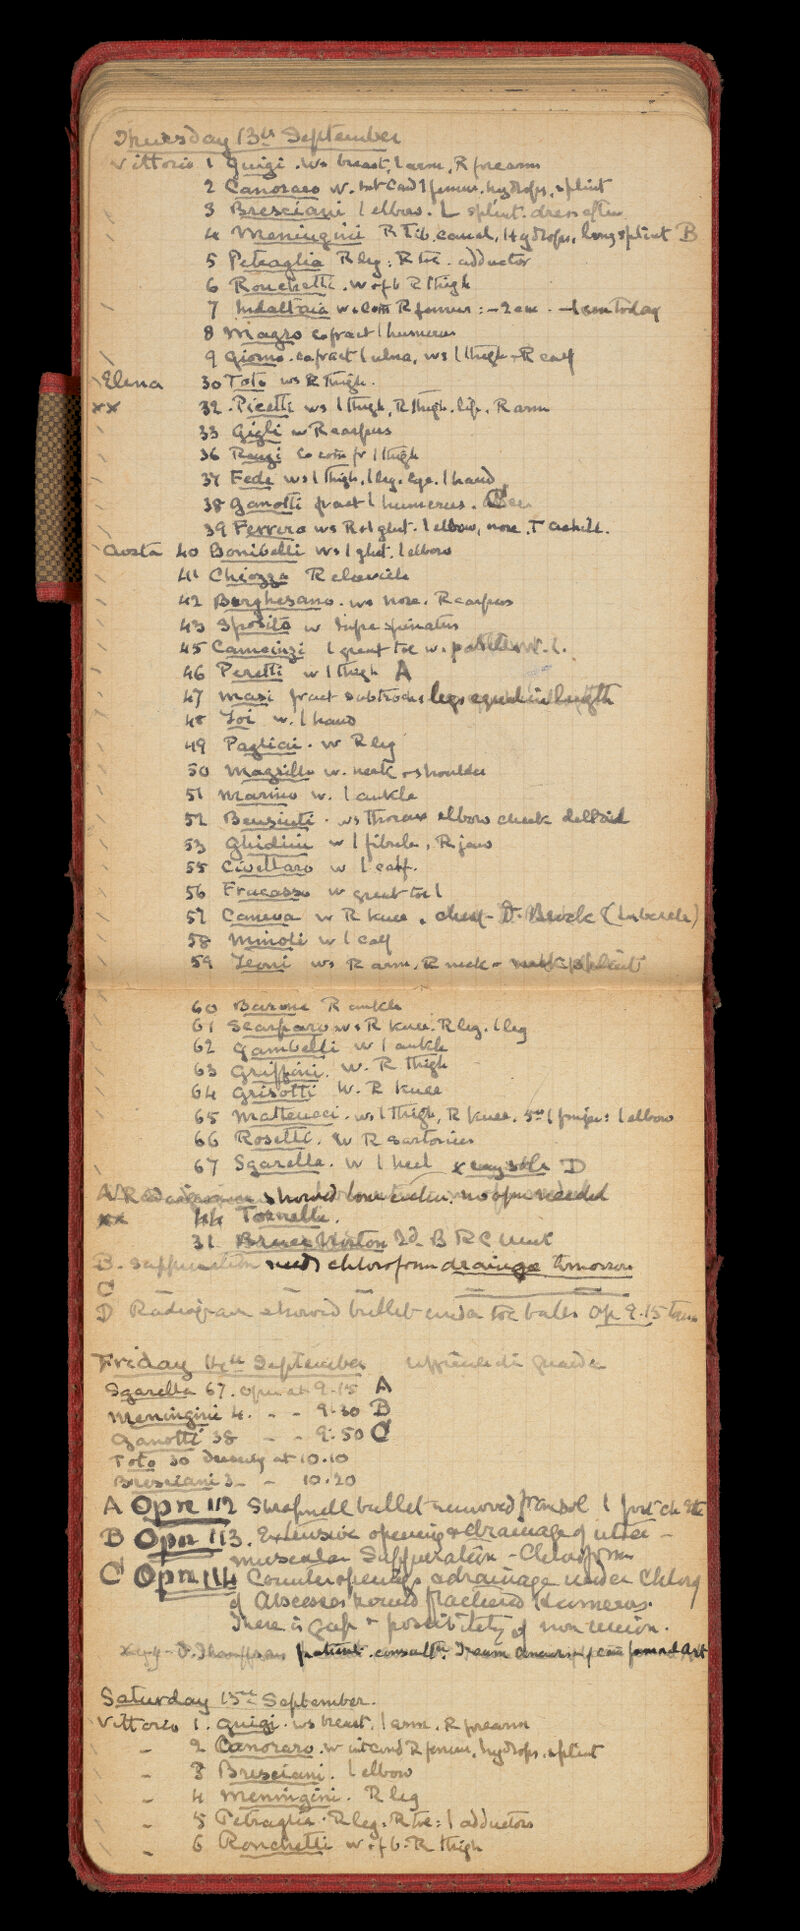 Thursday 13th September
Vittorio 1 Guigi . ws breast, l arm, R forearm
2 Canoraro w. int cond l femur, hydrops, splint
3 Bresciani l elbow. L splint. dress after
4 Meningini R Tib. canal, Hydrops, long splint B
5 Petraglia R leg: R toe. adductor
6 Ronchetti . w of b R thigh
7 w. com R femur : - 2 cm . - 1 cm Today
8 Magro co fract l humerus
9 Giomo . co fract l ulna, ws l thigh + R calf
Elena 30 Toto ws R thigh.
xx 32 . Picetti ws l thigh, R thigh. lip. R arm
33 Gigli w R carpus
36 Renzi co com fr l thigh
37 Fedi ws l thigh, l leg. Eye. l hand
38 Ganotti fract l humerus. C
39 Ferrero ws R + l glut. l elbow, nose, T achill.
Aosta 40 Bonibelli ws l glut. l elbow
41 Chiozza R clavicle
42 Borghesano . ws nose. R carpus
43 Sposito w supraspinatus
45 l great toe w.
46 Peretti w l thigh A
47 Masi fract subtroch: legs equal in length
48 Loi w. l hand
49 Pagliai . w R leg
50 Magrillo w. neck + shoulder
51 Marino w. l ankle
52 ws thorax elbow cheek deltoid
53 Ghidini w l fibula, R jaw
55 Civettaro w l calf.
56 Fracasso w great toe l
57 Caneva w R knee . chey - Dr. Brock (tubercle)
58 Minoli w l calf
59 Leoni ws R arm, R neck -
60 Barone R ankle
61 Scarparo ws R knee. R leg. l leg
62 Gambelli w l ankle
63 Griffini. w. R thigh
64 Grisotti w. R knee
65 Matteucci . ws l thigh, R knee. 5th l finger: l elbow
66 Rosetti. w R sartorius
67 Sgarella. w l heel x ray sole D
A showed no opn needed
xx 44 Tornelli.
31 2d. B R C Unit
B. suppuration needs chloroform drainage tomorrow
C
D Radiogram showed bullet under toe balls Op 9.15 tom
Friday 14th September ufficiale di guardia
Sgarella 67. opn at 9.15 A
Meningini 4. - - 9.30 B
Ganotti 38 - - 9.50 C
Toto 30 dressing at 10.10
Bresciani 3 - - 10.20
A Opn 112 Shrapnell bullet removed from sole l foot ch Eth
B Opn 113. Extensive opening & drainage of inter -
muscular Suppuration - Chloroform
C Opn 114 Counteropenings & drainage under Chlorof
of Abscesses round fractured Humerus.
There is Gap & possibility of non union.
xray - Dr. Thompson patient. consultn. Traum aneurism of
Saturday 15th September.
Vittorio 1. Guigi . ws breast, l arm, R forearm
- 2 Canoraro . w int cond R femur, hydrops, splint
- 3 Bresciani. l elbow
- 4 Meningini. R leg
- 5 Petraglia . R leg: R toe: l adductors
- 6 Ronchetti w . of b . R thigh